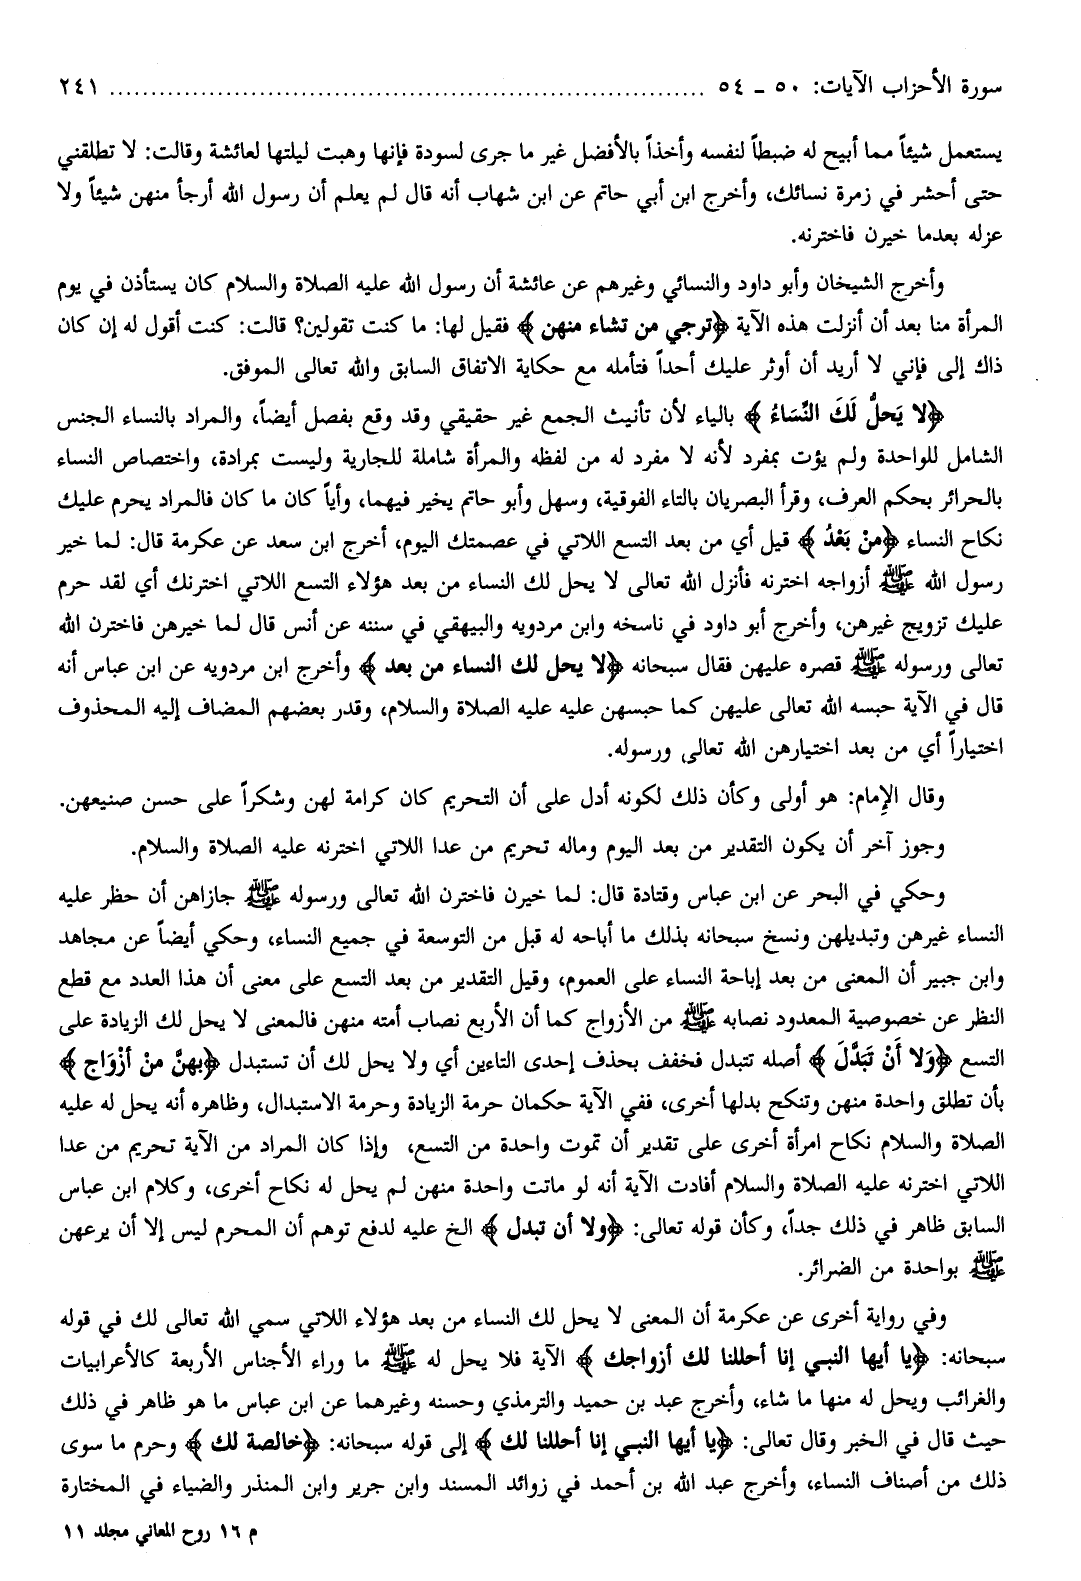 سورة الأحزاب الآيات: ٥٠ ـ ٥٤ ........................................................................ ٢٤١
يستعمل شيئاً مما أبيح له ضبطاً لنفسه وأخذاً بالأفضل غير ما جرى لسودة فإنها وهبت ليلتها لعائشة وقالت: لا تطلقني
حتى أحشر في زمرة نسائك، وأخرج ابن أبي حاتم عن ابن شهاب أنه قال لم يعلم أن رسول الله أرجأ منهن شيئاً ولا
عزله بعدما خيرن فاخترنه.
وأخرج الشيخان وأبو داود والنسائي وغيرهم عن عائشة أن رسول الله عليه الصلاة والسلام كان يستأذن في يوم
المرأة منا بعد أن أنزلت هذه الآية ﴿ترجي من تشاء منهن﴾ فقيل لها: ما كنت تقولين؟ قالت: كنت أقول له إن كان
ذاك إلى فإني لا أريد أن أوثر عليك أحداً فتأمله مع حكاية الاتفاق السابق والله تعالى الموفق.
﴿لا يَحلُّ لَكَ النِّسَاءُ﴾ بالياء لأن تأنيث الجمع غير حقيقي وقد وقع بفصل أيضاً، والمراد بالنساء الجنس
الشامل للواحدة ولم يؤت بمفرد لأنه لا مفرد له من لفظه والمرأة شاملة للجارية وليست بمرادة، واختصاص النساء
بالحرائر بحكم العرف، وقرأ البصريان بالتاء الفوقية، وسهل وأبو حاتم يخير فيهما، وأياً كان ما كان فالمراد يحرم عليك
نكاح النساء ﴿منْ بَعْدُ﴾ قيل أي من بعد التسع اللاتي في عصمتك اليوم، أخرج ابن سعد عن عكرمة قال: لما خير
رسول الله ﷺ أزواجه اخترنه فأنزل الله تعالى لا يحل لك النساء من بعد هؤلاء التسع اللاتي اخترنك أي لقد حرم
عليك تزويج غيرهن، وأخرج أبو داود في ناسخه وابن مردويه والبيهقي في سننه عن أنس قال لما خيرهن فاخترن الله
تعالى ورسوله ﷺ قصره عليهن فقال سبحانه ﴿لا يحل لك النساء من بعد﴾ وأخرج ابن مردويه عن ابن عباس أنه
قال في الآية حبسه الله تعالى عليهن كما حبسهن عليه عليه الصلاة والسلام، وقدر بعضهم المضاف إليه المحذوف
اختياراً أي من بعد اختيارهن الله تعالى ورسوله.
وقال الإمام: هو أولى وكأن ذلك لكونه أدل على أن التحريم كان كرامة لهن وشكراً على حسن صنيعهن.
وجوز آخر أن يكون التقدير من بعد اليوم وماله تحريم من عدا اللاتي اخترنه عليه الصلاة والسلام.
وحكي في البحر عن ابن عباس وقتادة قال: لما خيرن فاخترن الله تعالى ورسوله ﷺ جازاهن أن حظر عليه
النساء غيرهن وتبديلهن ونسخ سبحانه بذلك ما أباحه له قبل من التوسعة في جميع النساء، وحكي أيضاً عن مجاهد
وابن جبير أن المعنى من بعد إباحة النساء على العموم، وقيل التقدير من بعد التسع على معنى أن هذا العدد مع قطع
النظر عن خصوصية المعدود نصابه ﷺ من الأزواج كما أن الأربع نصاب أمته منهن فالمعنى لا يحل لك الزيادة على
التسع ﴿وَلا أَنْ تَبَدَّلَ﴾ أصله تتبدل فخفف بحذف إحدى التاءين أي ولا يحل لك أن تستبدل ﴿بهنَّ منْ أزْوَاج﴾
بأن تطلق واحدة منهن وتنكح بدلها أخرى، ففي الآية حكمان حرمة الزيادة وحرمة الاستبدال، وظاهره أنه يحل له عليه
الصلاة والسلام نكاح امرأة أخرى على تقدير أن تموت واحدة من التسع، وإذا كان المراد من الآية تحريم من عدا
اللاتي اخترنه عليه الصلاة والسلام أفادت الآية أنه لو ماتت واحدة منهن لم يحل له نكاح أخرى، وكلام ابن عباس
السابق ظاهر في ذلك جداً، وكأن قوله تعالى: ﴿ولا أن تبدل﴾ الخ عليه لدفع توهم أن المحرم ليس إلا أن يرعهن
ﷺ بواحدة من الضرائر.
وفي رواية أخرى عن عكرمة أن المعنى لا يحل لك النساء من بعد هؤلاء اللاتي سمي الله تعالى لك في قوله
سبحانه: ﴿يا أيها النبي إنا أحللنا لك أزواجك﴾ الآية فلا يحل له ﷺ ما وراء الأجناس الأربعة كالأعرابيات
والغرائب ويحل له منها ما شاء، وأخرج عبد بن حميد والترمذي وحسنه وغيرهما عن ابن عباس ما هو ظاهر في ذلك
حيث قال في الخبر وقال تعالى: ﴿يا أيها النبي إنا أحللنا لك﴾ إلى قوله سبحانه: ﴿خالصة لك﴾ وحرم ما سوى
ذلك من أصناف النساء، وأخرج عبد الله بن أحمد في زوائد المسند وابن جرير وابن المنذر والضياء في المختارة
م ١٦ روح المعاني مجلد ١١